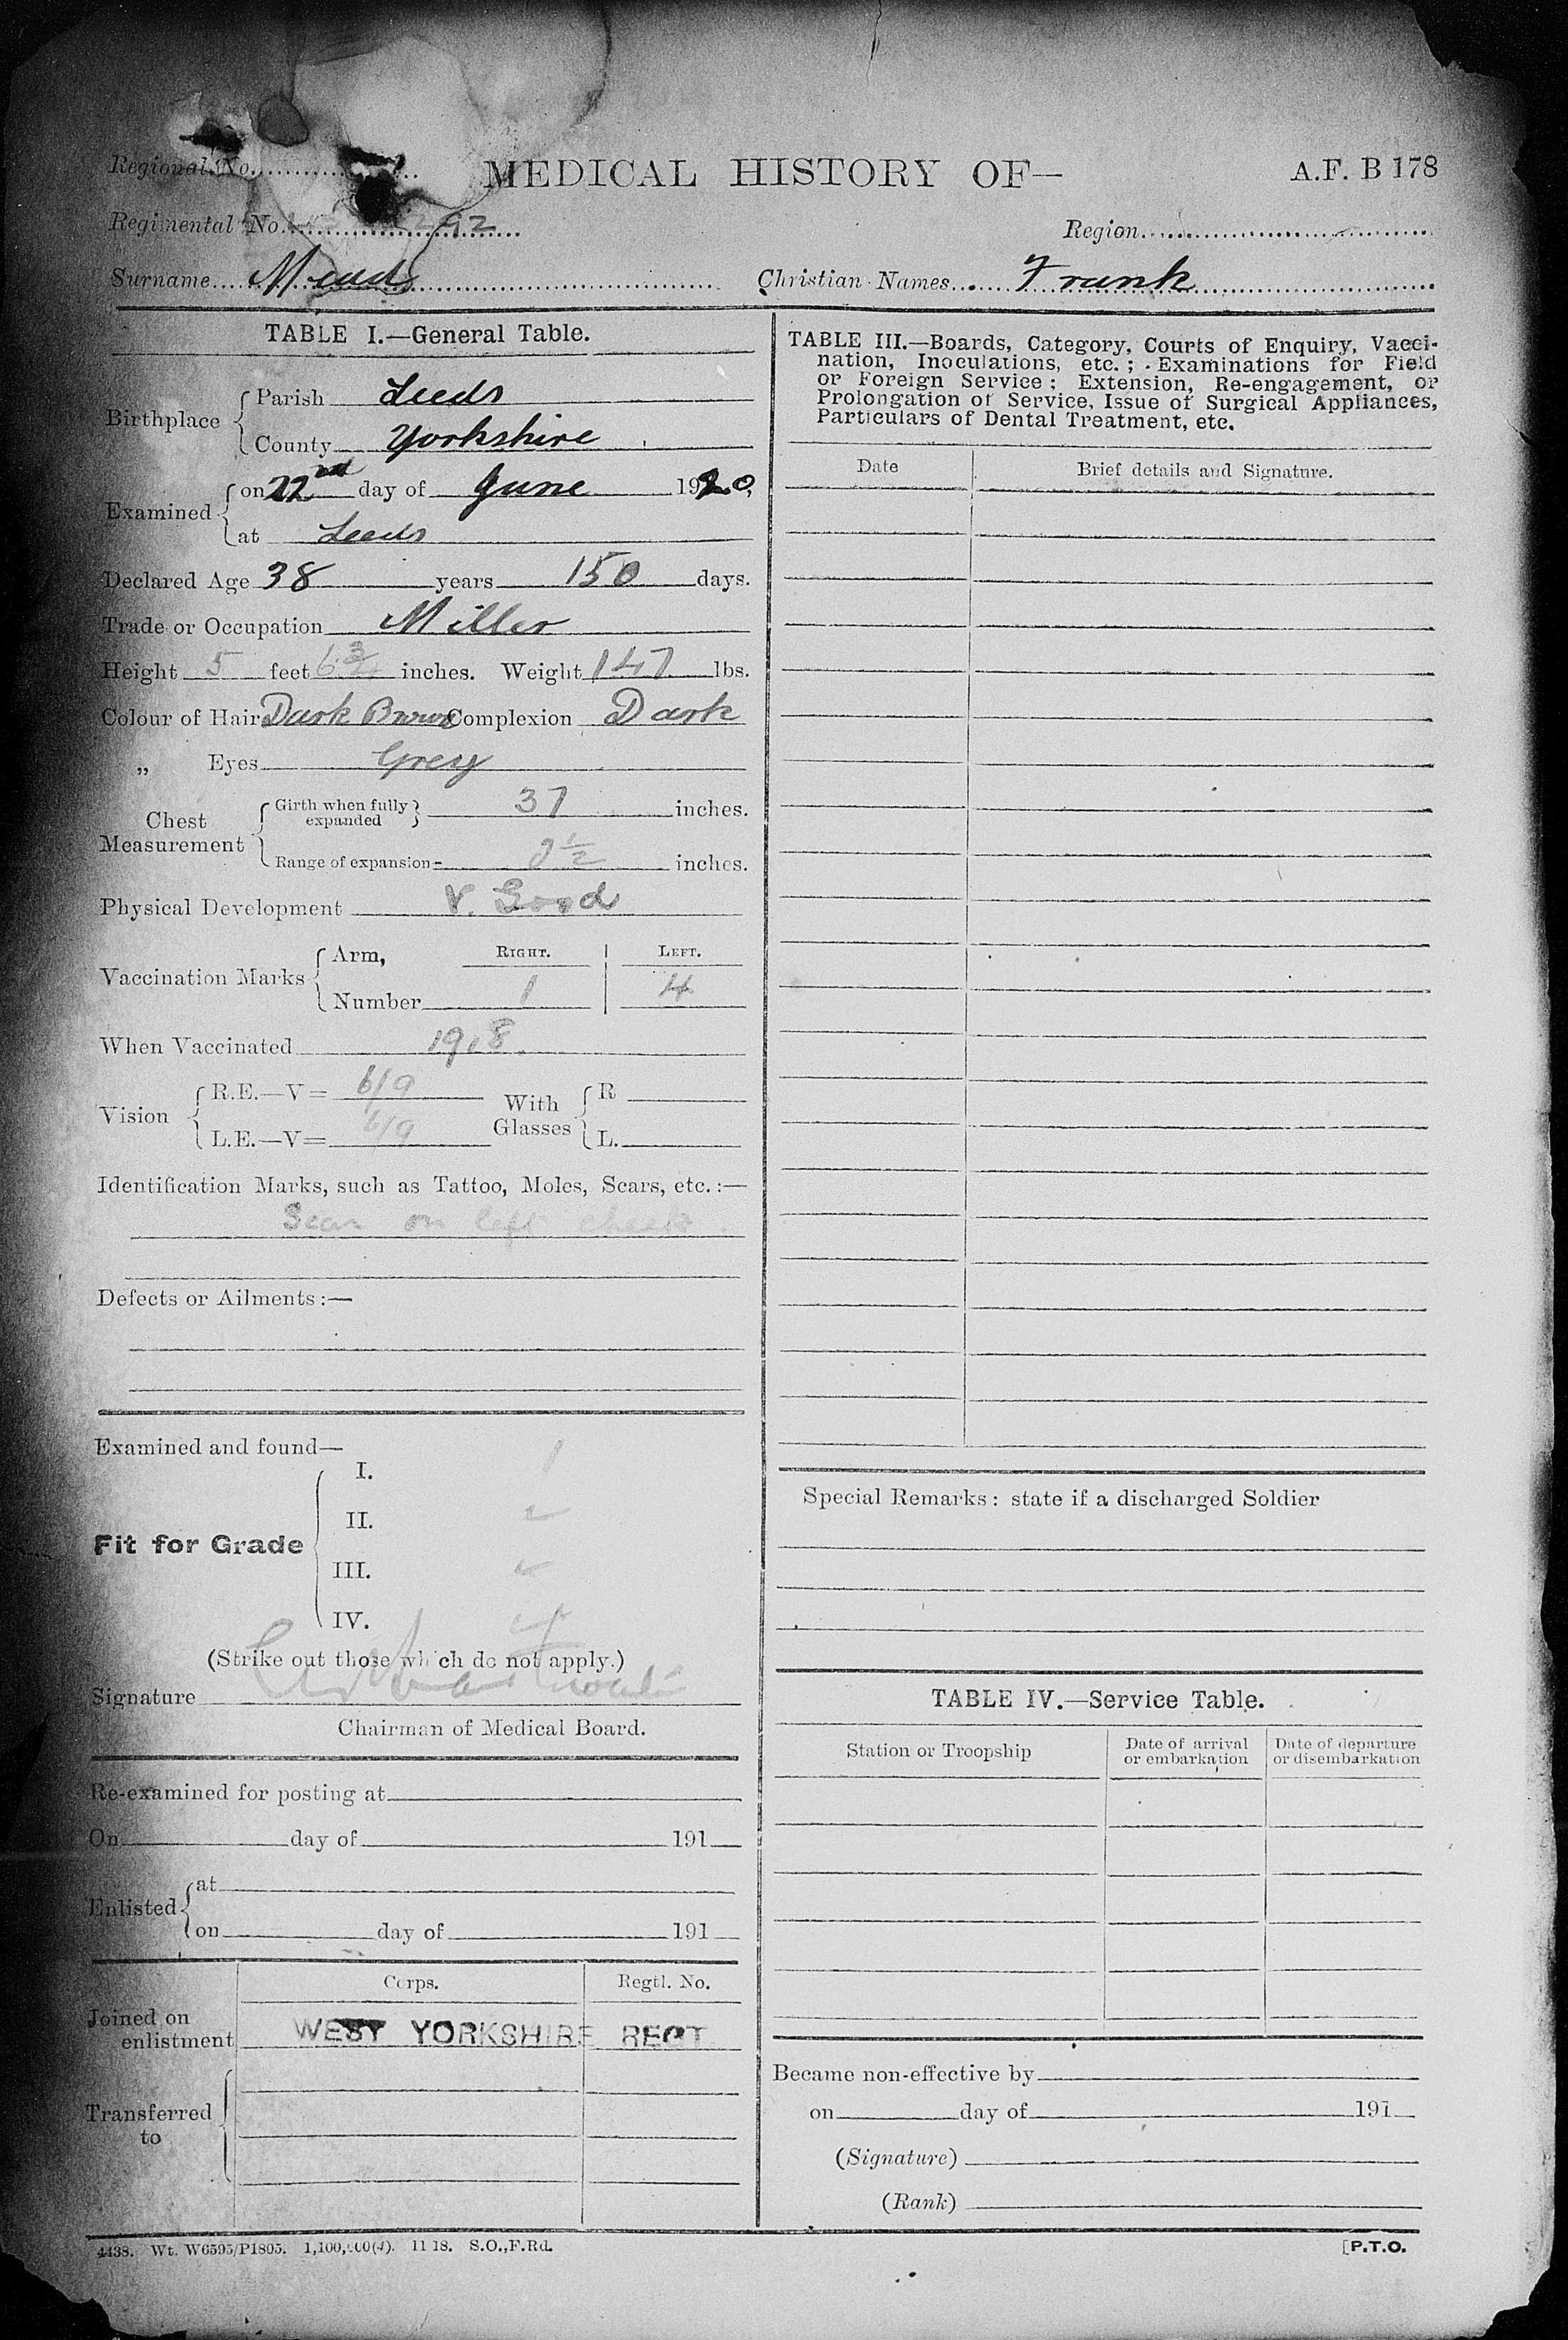 Regional No.
MEDICAL HISTORY OF—
A.F. B 178
Regimental No. 292
Region
Surname Meads
Christian Names Frank
TABLE I.—General Table.
Birthplace
Parish Leeds
County Yorkshire
Examined
on 22nd day of June 1920,
at Leeds
Declared Age 38 years 150 days.
Trade or Occupation Miller
Height 5 feet 6 3/4 inches. Weight 147 lbs.
Colour of Hair Dark Brown Complexion Dark
„ Eyes Grey
Chest Measurement
Girth when fully expanded 37 inches.
Range of expansion 2 1/2 inches.
Physical Development V. Good
Vaccination Marks
Arm, RIGHT. LEFT.
Number 1 4
When Vaccinated 1918.
Vision
R.E.—V= 6/9
L.E.—V= 6/9
With Glasses
R
L.
Identification Marks, such as Tattoo, Moles, Scars, etc.:—
Scar on left cheek.
Defects or Ailments:—
Examined and found—
Fit for Grade
I. 1
II.
III.
IV.
(Strike out those which do not apply.)
Signature
Chairman of Medical Board.
Re-examined for posting at
On day of 191
Enlisted
at
on day of 191
Corps. Regtl. No.
Joined on enlistment WEST YORKSHIRE REGT
Transferred to
TABLE III.—Boards, Category, Courts of Enquiry, Vacci-
nation, Inoculations, etc.; Examinations for Field
or Foreign Service; Extension, Re-engagement, or
Prolongation of Service, Issue of Surgical Appliances,
Particulars of Dental Treatment, etc.
Date Brief details and Signature.
Special Remarks: state if a discharged Soldier
TABLE IV.—Service Table.
Station or Troopship
Date of arrival or embarkation
Date of departure or disembarkation
Became non-effective by
on day of 191
(Signature)
(Rank)
4438. Wt. W6595/P1805. 1,100,000(4). 11 18. S.O.,F.Rd.
[P.T.O.